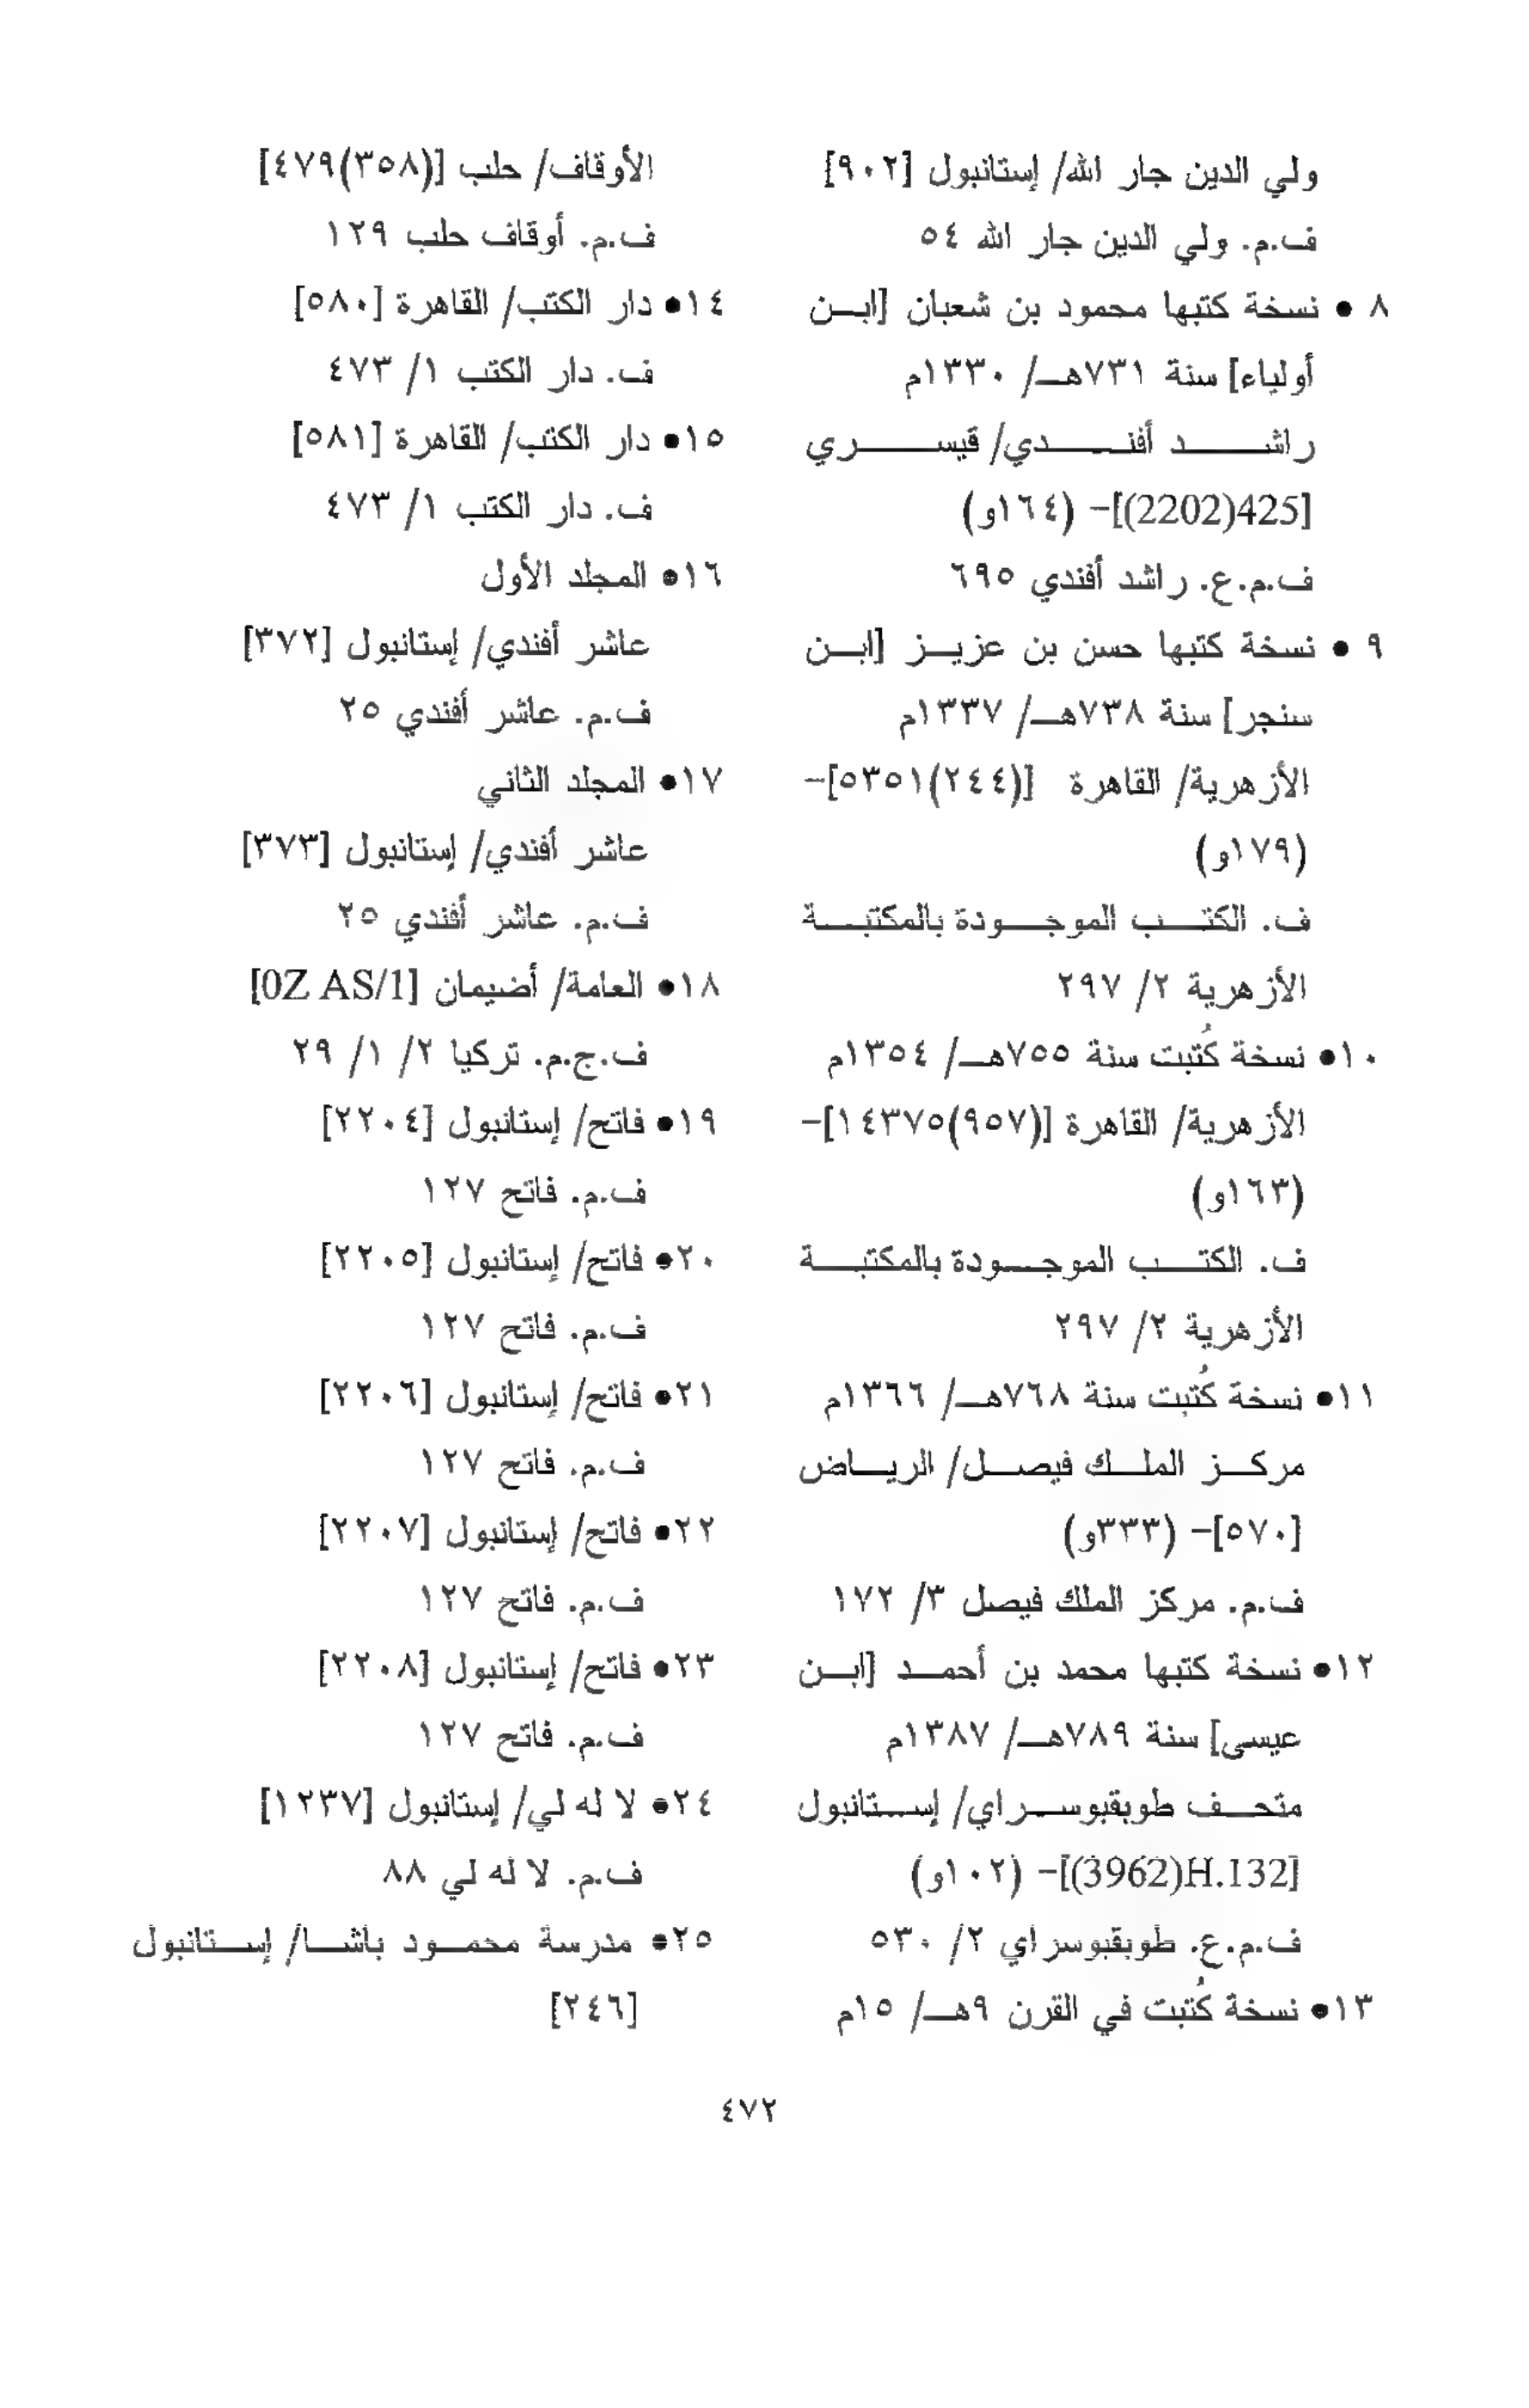 ولي الدين جار الله/ إستانبول [٩٠٢]
ف.م. ولي الدين جار الله ٥٤
٨ • نسخة كتبها محمود بن شعبان [ابـن
أولياء] سنة ٧٣١هـ/ ١٣٣٠م
راشد أفندي/ قيسري
[425(2202)]- (١٦٤و)
ف.م.ع. راشد أفندي ٦٩٥
٩ • نسخة كتبها حسن بن عزيز [ابن
سنجر] سنة ٧٣٨هـ/ ١٣٣٧م
الأزهرية/ القاهرة [(٢٤٤)٥٣٥١]-
(١٧٩و)
ف. الكتب الموجودة بالمكتبة
الأزهرية ٢/ ٢٩٧
١٠• نسخة كُتبت سنة ٧٥٥هـ/ ١٣٥٤م
الأزهرية/ القاهرة [(٩٥٧)١٤٣٧٥]-
(١٦٣و)
ف. الكتب الموجودة بالمكتبة
الأزهرية ٢/ ٢٩٧
١١• نسخة كُتبت سنة ٧٦٨هـ/ ١٣٦٦م
مركز الملك فيصل/ الرياض
[٥٧٠]- (٣٣٣و)
ف.م. مركز الملك فيصل ٣/ ١٧٢
١٢• نسخة كتبها محمد بن أحمد [ابن
عيسى] سنة ٧٨٩هـ/ ١٣٨٧م
متحف طوبقبوسراي/ إستانبول
[H.132(3962)]- (١٠٢و)
ف.م.ع. طوبقبوسراي ٢/ ٥٣٠
١٣• نسخة كُتبت في القرن ٩هـ/ ١٥م
الأوقاف/ حلب [(٣٥٨)٤٧٩]
ف.م. أوقاف حلب ١٢٩
١٤• دار الكتب/ القاهرة [٥٨٠]
ف. دار الكتب ١/ ٤٧٣
١٥• دار الكتب/ القاهرة [٥٨١]
ف. دار الكتب ١/ ٤٧٣
١٦• المجلد الأول
عاشر أفندي/ إستانبول [٣٧٢]
ف.م. عاشر أفندي ٢٥
١٧• المجلد الثاني
عاشر أفندي/ إستانبول [٣٧٣]
ف.م. عاشر أفندي ٢٥
١٨• العامة/ أضيمان [0Z AS/1]
ف.ج.م. تركيا ٢/ ١/ ٢٩
١٩• فاتح/ إستانبول [٢٢٠٤]
ف.م. فاتح ١٢٧
٢٠• فاتح/ إستانبول [٢٢٠٥]
ف.م. فاتح ١٢٧
٢١• فاتح/ إستانبول [٢٢٠٦]
ف.م. فاتح ١٢٧
٢٢• فاتح/ إستانبول [٢٢٠٧]
ف.م. فاتح ١٢٧
٢٣• فاتح/ إستانبول [٢٢٠٨]
ف.م. فاتح ١٢٧
٢٤• لا له لي/ إستانبول [١٢٣٧]
ف.م. لا له لي ٨٨
٢٥• مدرسة محمود باشا/ إستانبول
[٢٤٦]
٤٧٢